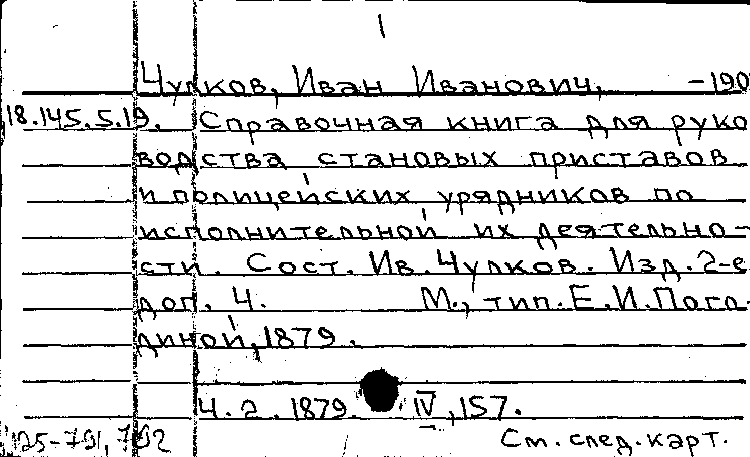 1
Чулков, Иван Иванович, -190
18.145.5.19. Справочная книга для руко
водства становых приставов
и полицейских урядников по
исполнительной их деятельно-
сти. Сост. Ив. Чулков. Изд. 2-е
доп. Ч. М., тип. Е. И. Пого-
диной, 1879.
Ч. 2. 1879. IV, 157.
125-791, 792 См. след. карт.